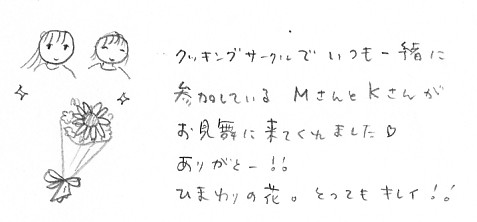 クッキングサークルでいつも一緒に
参加している MさんとKさんが
お見舞に来てくれました♡
ありがとー!!
ひまわりの花。とってもキレイ!!